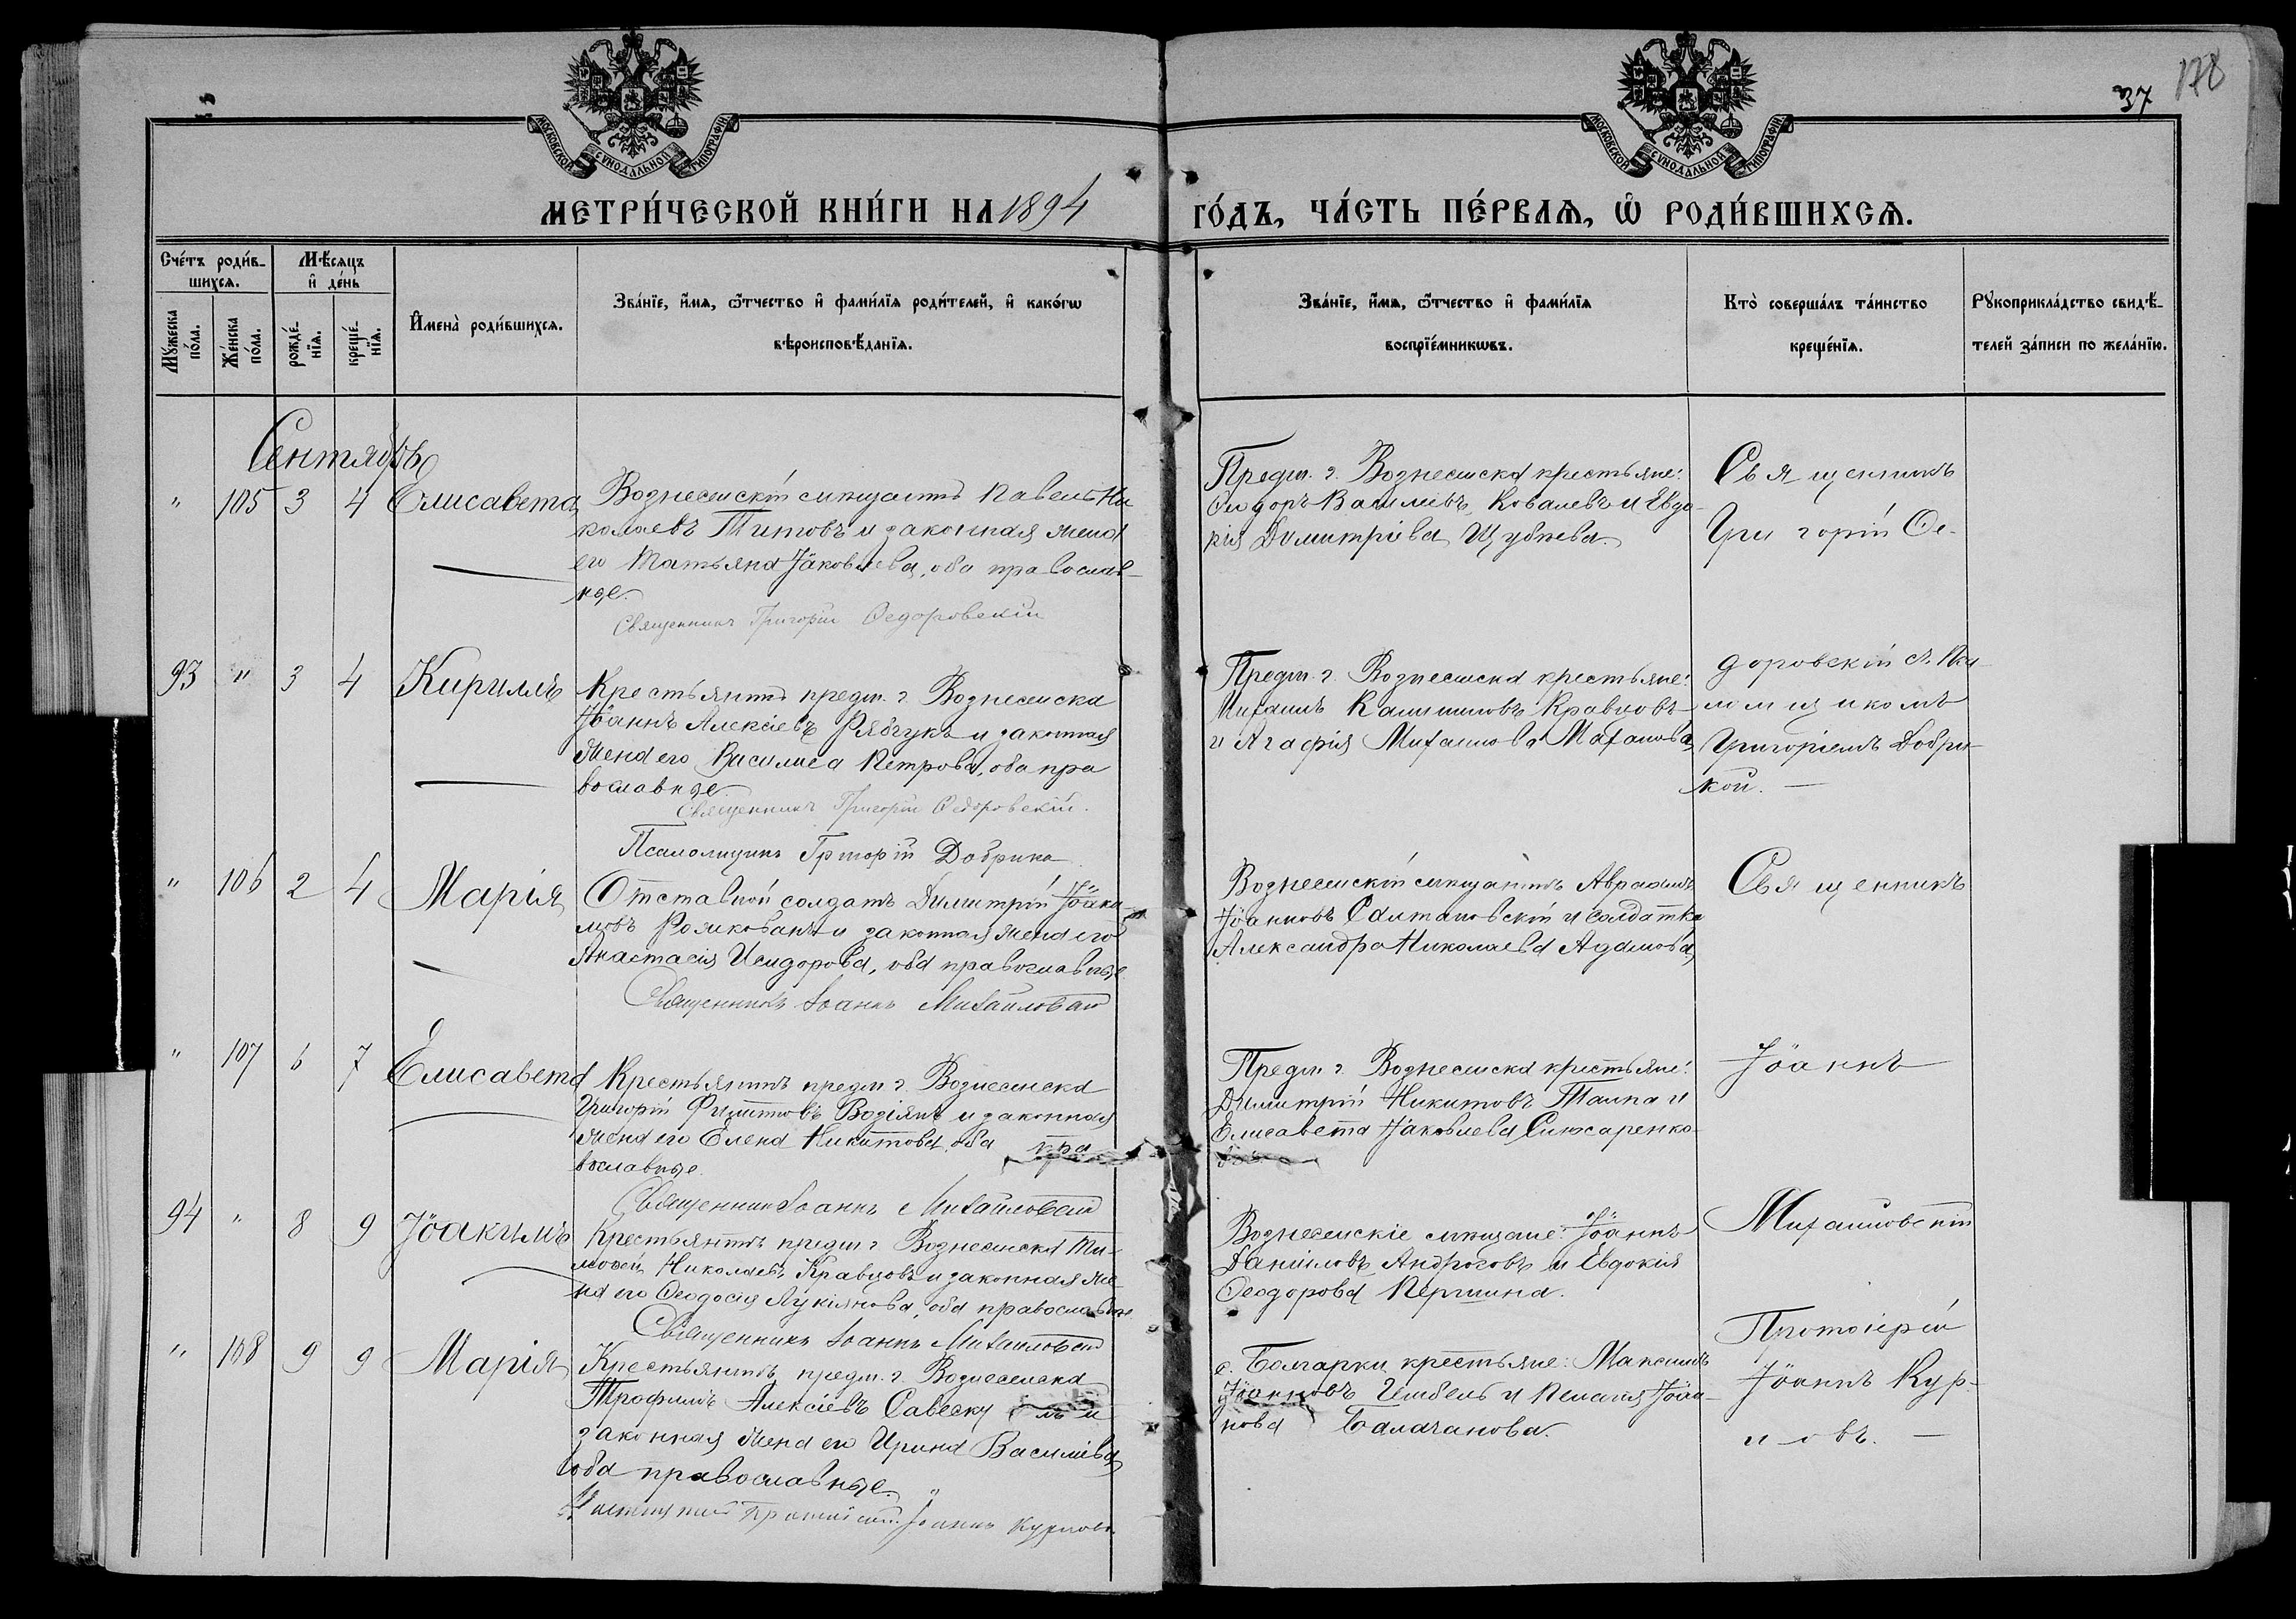 178
37
МОСКОВСКОЙ СУНОДАЛЬНОЙ ТИПОГРАФІИ
МОСКОВСКОЙ СУНОДАЛЬНОЙ ТИПОГРАФІИ
МЕТРИ́ЧЕСКОЙ КНИ́ГИ НА 1894 ГО́ДЪ, ЧА́СТЬ ПЕ́РВАѦ, Ѡ҆ РОДИ́ВШИХСѦ.
Сче́тъ роди́в-
шихсѧ.
Мꙋ́жеска по́ла.
Же́нска по́ла.
Мѣ́сѧцъ и҆ де́нь
рожде́-
нїѧ.
креще́-
нїѧ.
И҆мена̀ роди́вшихсѧ.
Зва́нїе, и҆́мѧ, ѻ҆́тчество и҆ фами́лїѧ роди́телей, и҆ како́гѡ
вѣроисповѣ́данїѧ.
Зва́нїе, и҆́мѧ, ѻ҆́тчество и҆ фами́лїѧ
воспрїе́мникѡвъ.
Кто̀ соверша́лъ та́инство
креще́нїѧ.
Рꙋкоприкла́дство свидѣ́-
телей за́писи по жела́нїю.
Сентябрь
" 105 3 4 Елисавета
Вознесенскій мѣщанинъ Павелъ Ни
колаевъ Титовъ и законная жена
его Татьяна Іаковлева, оба православ-
ные.
Священникъ Григорій Ѳедоровскій
Предм. г. Вознесенска крестьяне:
Ѳеодоръ Василіевъ Ковалевъ и Евдо-
кія Димитріева
Священникъ
Григорій Ѳе-
93 " 3 4 Кириллъ
Крестьянинъ предм. г. Вознесенска
Іоаннъ Алексіевъ Рябчукъ и законная
жена его Василиса Петрова, оба пра
вославные
Священникъ Григорій Ѳедоровскій.
Псаломщикъ Григорій Добрика
Предм. г. Вознесенска крестьяне:
Михаилъ Кравцовъ
и Агафія Михаилова
доровскій съ Пса
ломщикомъ
Григоріемъ Добри-
кой. —
" 106 2 4 Марія
Отставной солдатъ Димитрій Іоаки-
мовъ и законная жена его
Анастасія Исидорова, оба православные.
Священникъ Іоаннъ Михайловскій
Вознесенскій мѣщанинъ Авраамъ
Іоанновъ и солдатка
Александра Николаева Адамова
Священникъ
" 107 6 7 Елисавета
Крестьянинъ предм. г. Вознесенска
Григорій и законная
жена его Елена Никитова, оба пра
вославные.
Священникъ Іоаннъ Михайловскій
Предм. г. Вознесенска крестьяне:
Димитрій Никитовъ и
Елисавета Іаковлева Слюсаренко-
ва.
Іоаннъ
94 " 8 9 Іоакимъ
Крестьянинъ предм. г. Вознесенска Ти-
моѳей Николаевъ Кравцовъ и законная же-
на его Ѳеодосія Лукіянова, оба православные
Священникъ Іоаннъ Михайловскій
Вознесенскіе мѣщане: Іоаннъ
Даніиловъ и Евдокія
Ѳеодорова Першина.
Михайловскій
" 108 9 9 Марія
Крестьянинъ предм. г. Вознесенска
Трофимъ Алексіевъ Савеску и
законная жена его Ирина Василіева,
оба православные.
Іоаннъ Курловъ
с. Болгарки крестьяне: Максимъ
Іоанновъ и Пелагія Іоан-
нова Балачанова.
Протоіерей
Іоаннъ Кур-
ловъ. —